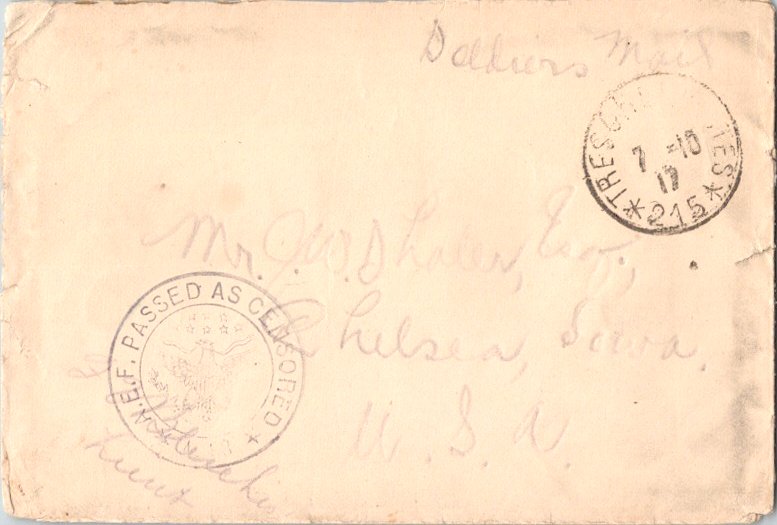 Soldiers Mail
TRESOR ET POSTES
7 -10
17
*215*
Mr. J. W. Shaler, Esq.,
Chelsea, Iowa.
U. S. A.
A.E.F. PASSED AS CENSORED
Lieut